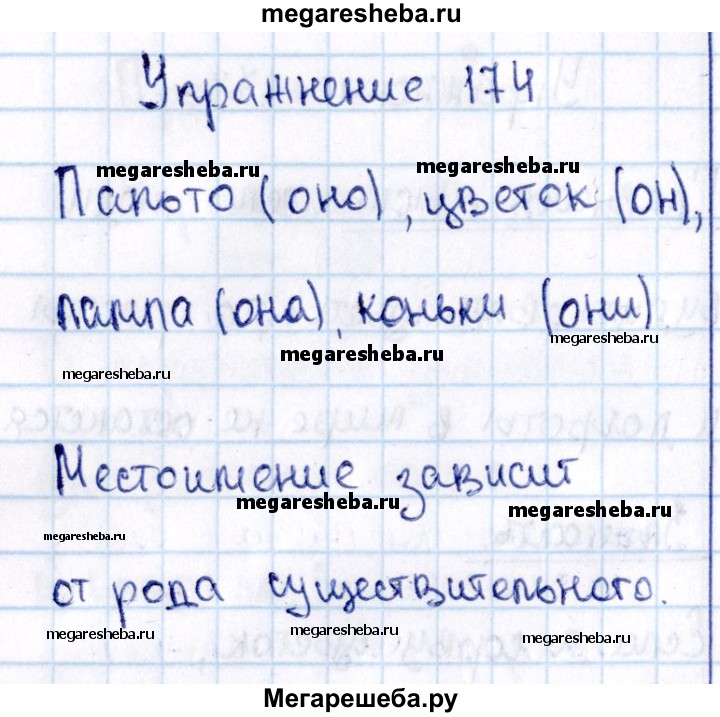 megaresheba.ru
Упражнение 174
megaresheba.ru megaresheba.ru
Пальто (оно), цветок (он),
лампа (она), коньки (они).
megaresheba.ru
megaresheba.ru
megaresheba.ru
Местоимение зависит
megaresheba.ru
megaresheba.ru
megaresheba.ru
от рода существительного.
megaresheba.ru megaresheba.ru megaresheba.ru
Мегарешеба.ру